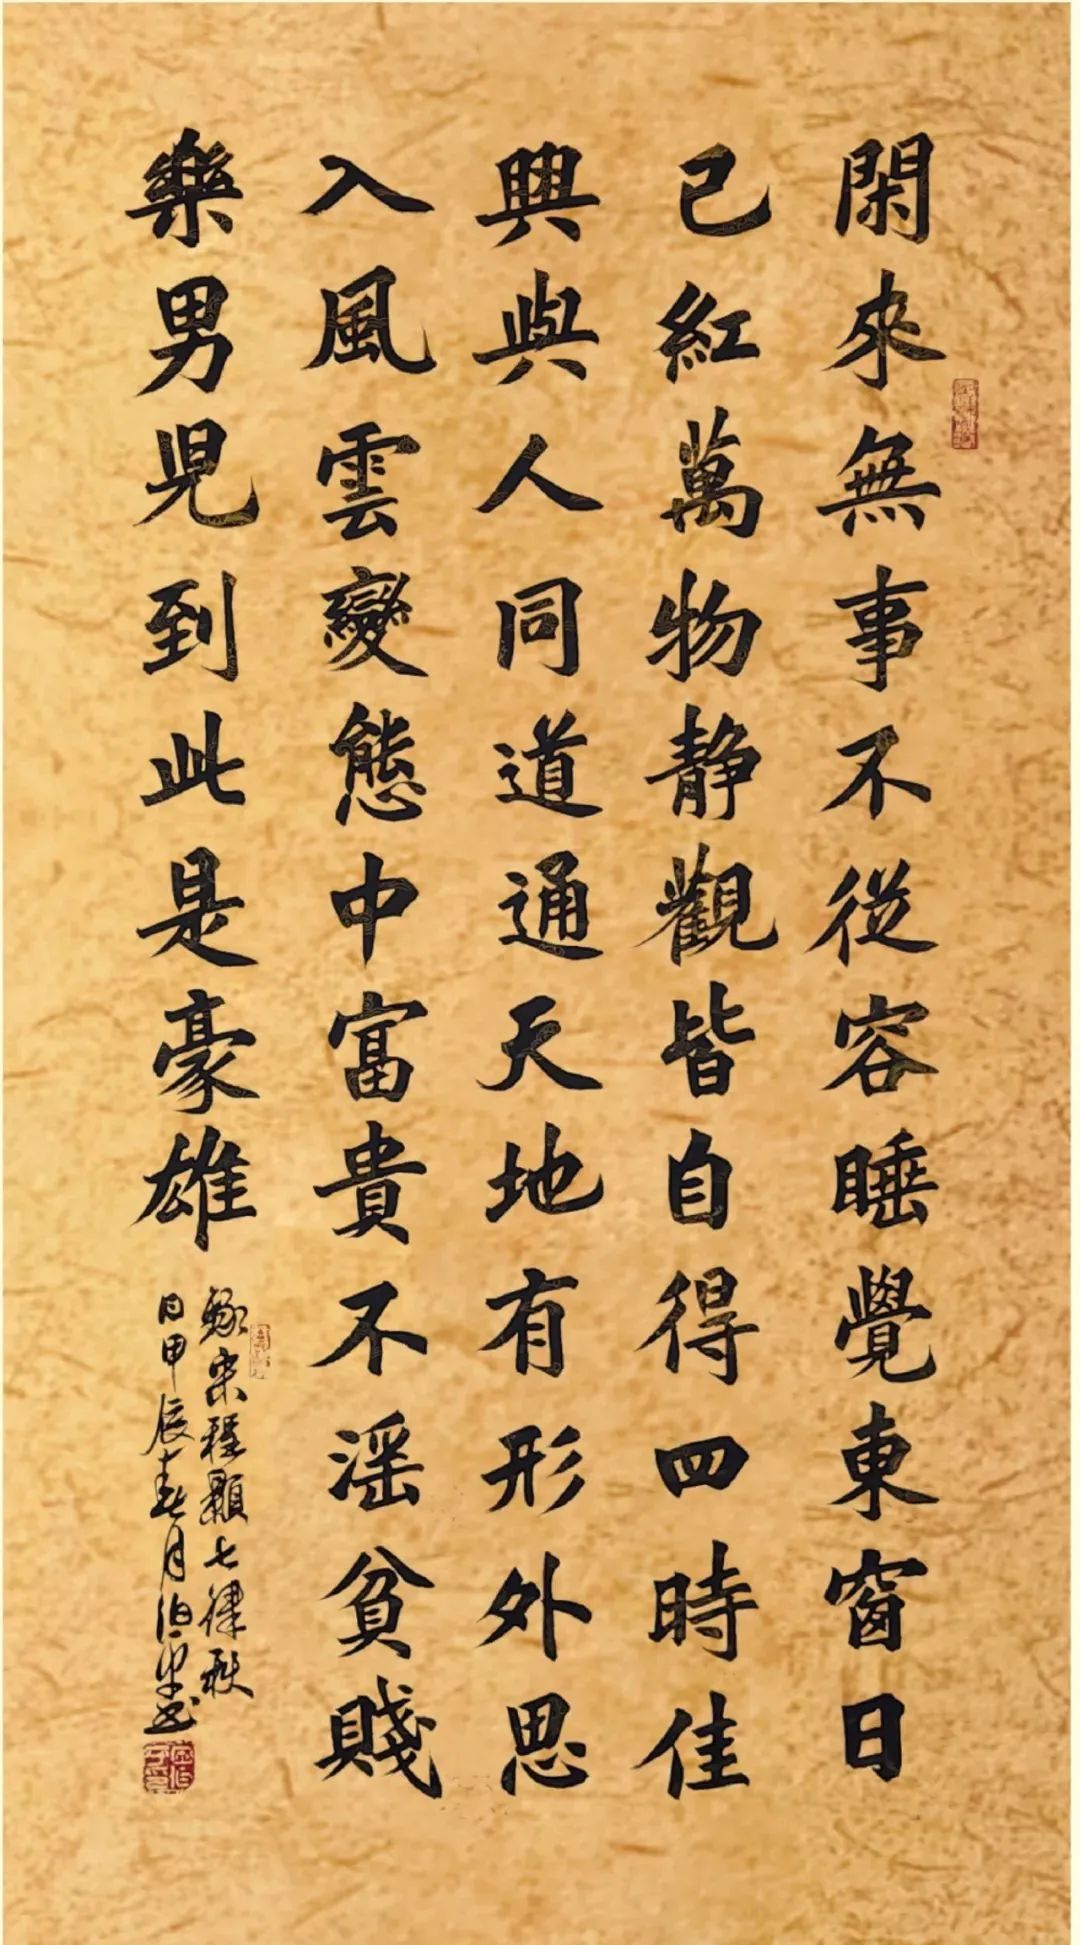 閑來無事不從容睡覺東窗日
已紅萬物静觀皆自得四時佳
興與人同道通天地有形外思
入風雲變態中富貴不滛貧賤
樂男児到此是豪雄
錄宋程顥七律秋
日甲辰春月伯平书